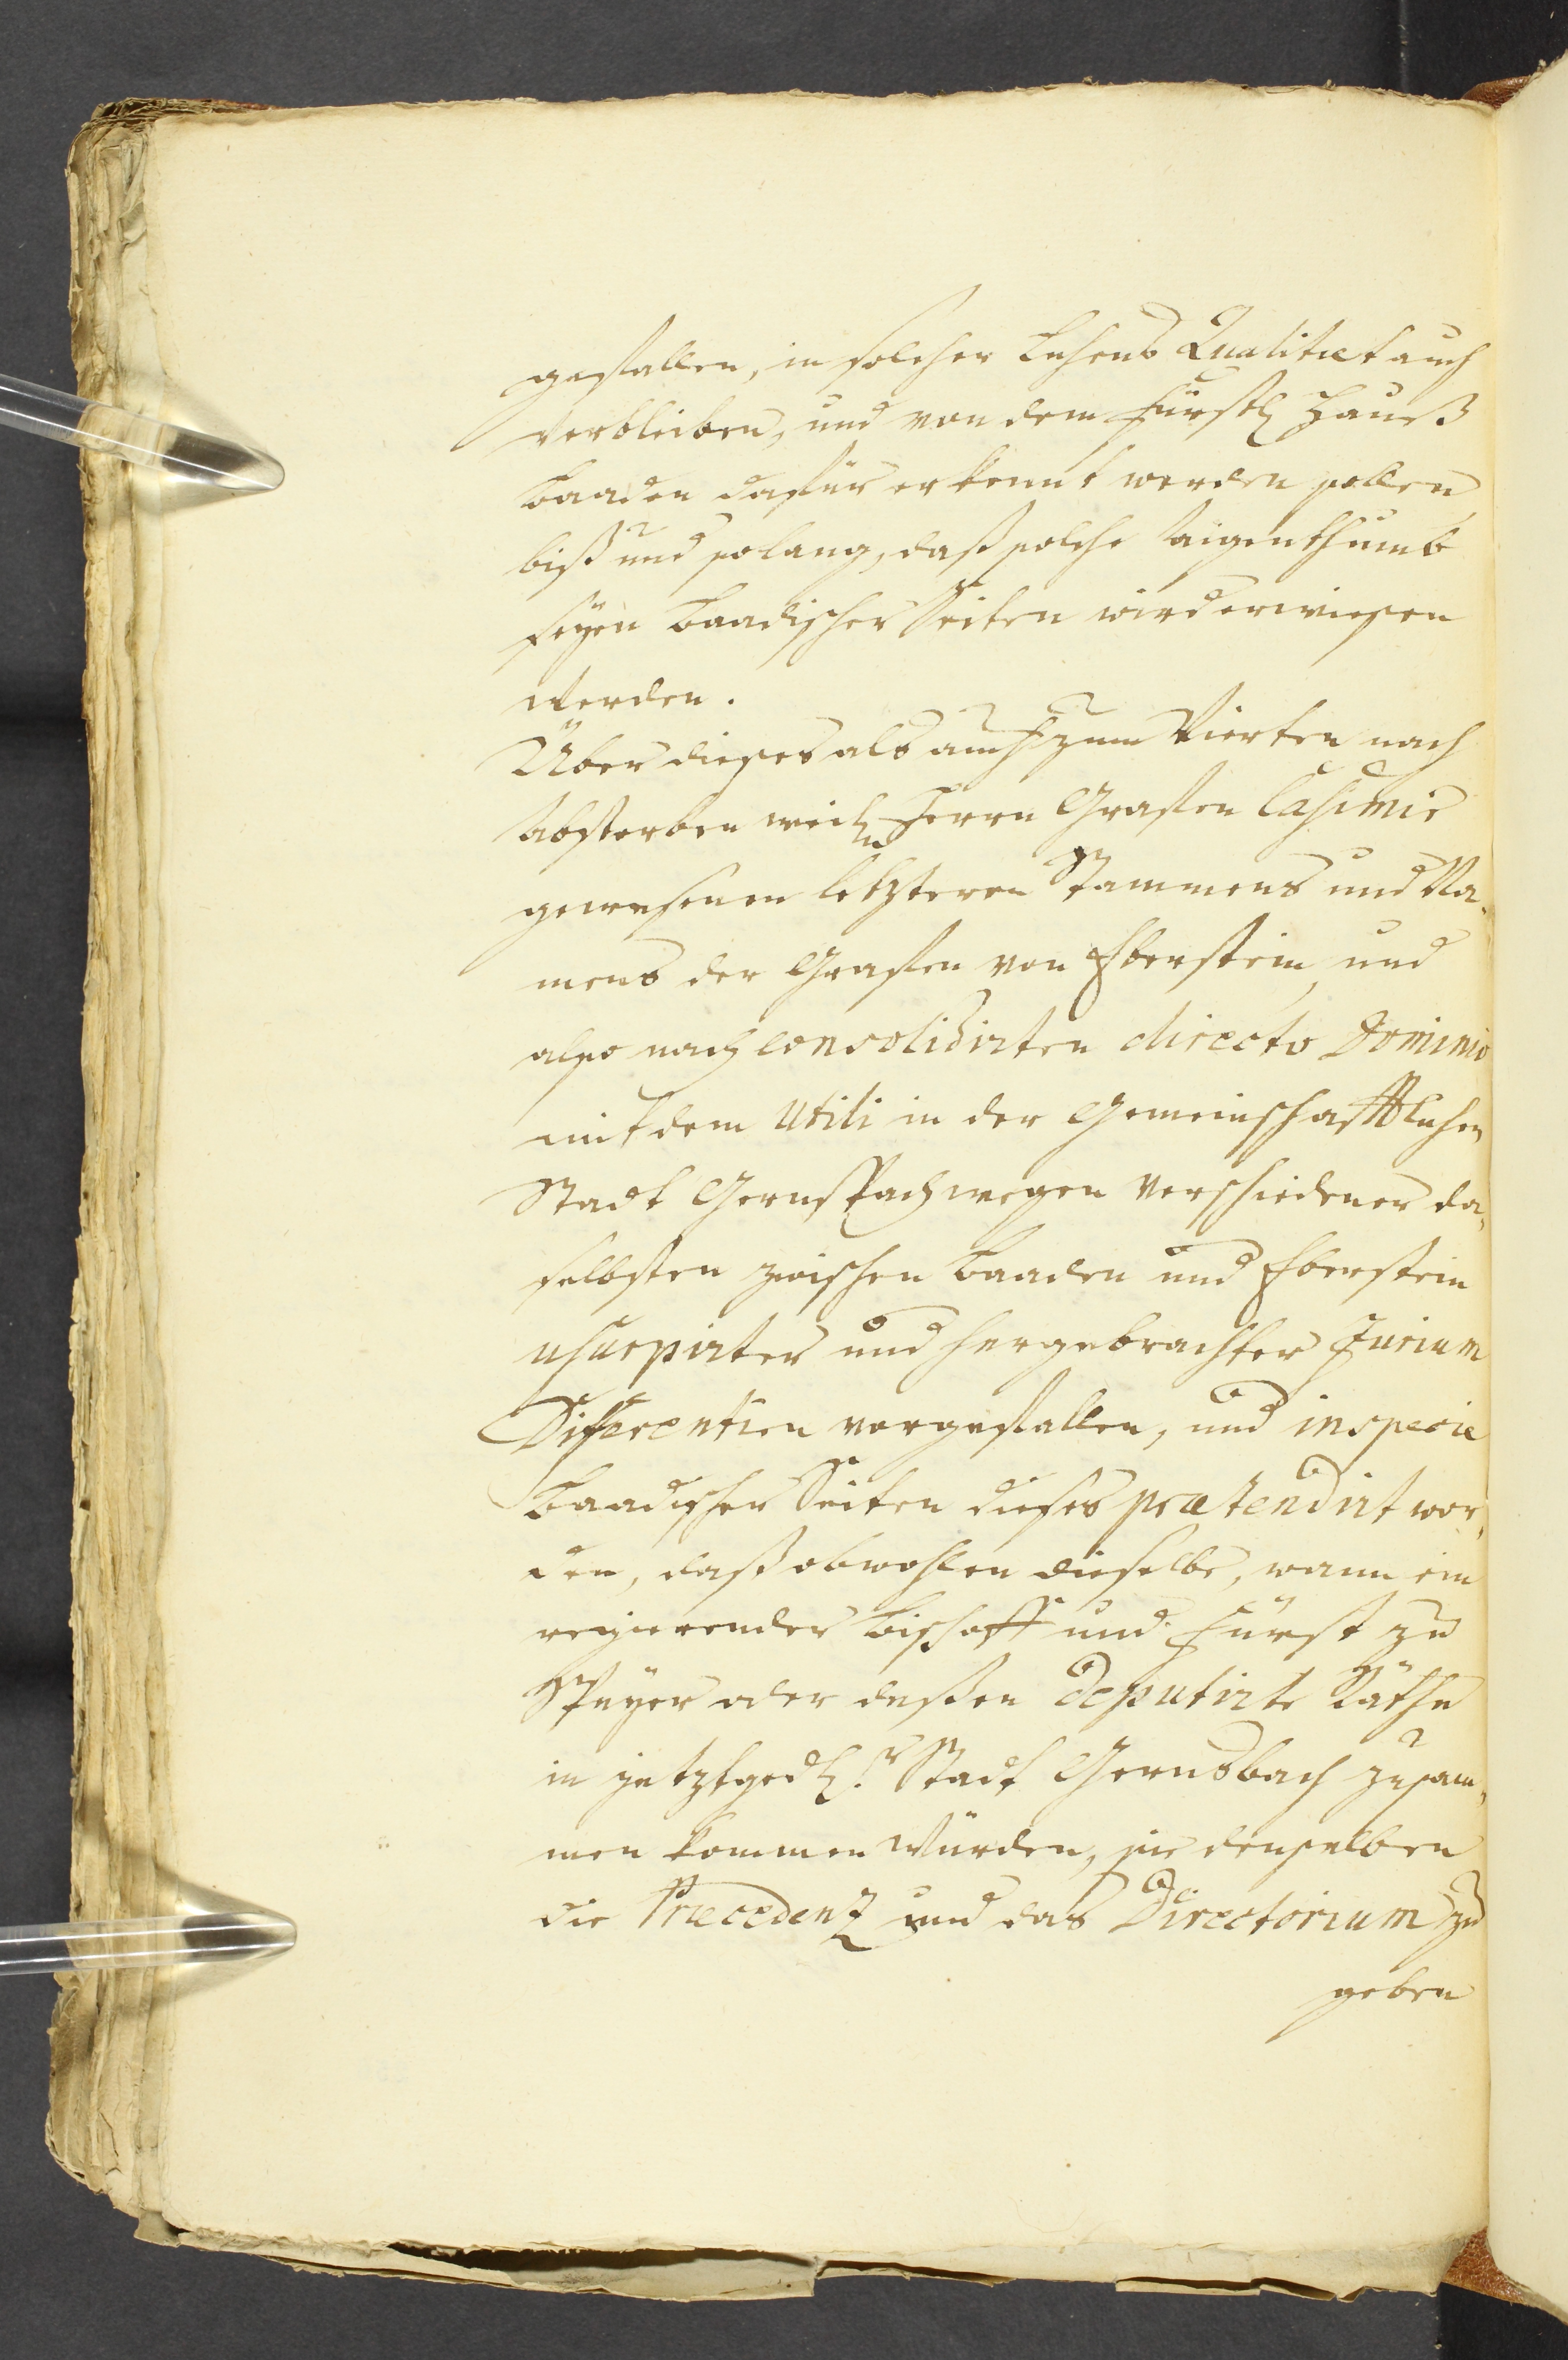 gefallen, in solcher Lehens Qualitæt auch
verbleiben, und von dem Fürstl Hauß
Baaden dafür erkennt werden sollen,
biß und solang, daß solche Aigenthumb
seyen Baadischer Seiten wird erwiesen
werden.
Über dieses als auch zum Vierten nach
Absterben weil Herrn Grafen Casimir
gewesenen letzteren Stammens und Na-
mens der Grafen von Eberstein, und
also nach consolidirten directo Dominio
mit dem Utili in der Gemeinschafftlichen
Stadt Gernspach wegen verschiedener da-
selbsten zwischen Baaden und Eberstein
usurpirter und hergebrachter Jurium
Differentien vorgefallen, und in specie
Baadischer Seiten dieses prætendirt wor-
den, daß obwohlen dieselbe, wann ein
regierender Bischoff und Fürst zu
Speyer oder deßen deputirte Räthe
in jetztgedl.r Stadt Gernsbach zusam-
men kommen würden, sie denselben
die Præcedenz und das Directorium zu
geben